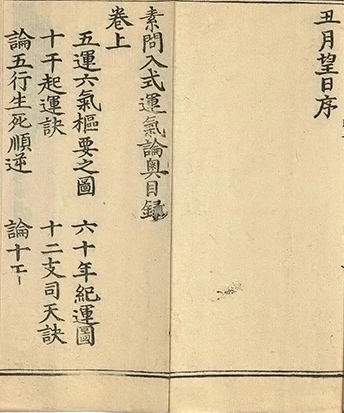 丑月望日序
素問入式運氣論奧目錄
卷上
五運六氣樞要之圖 六十年紀運圖
十干起運訣 十二支司天訣
論五行生死順逆 論十